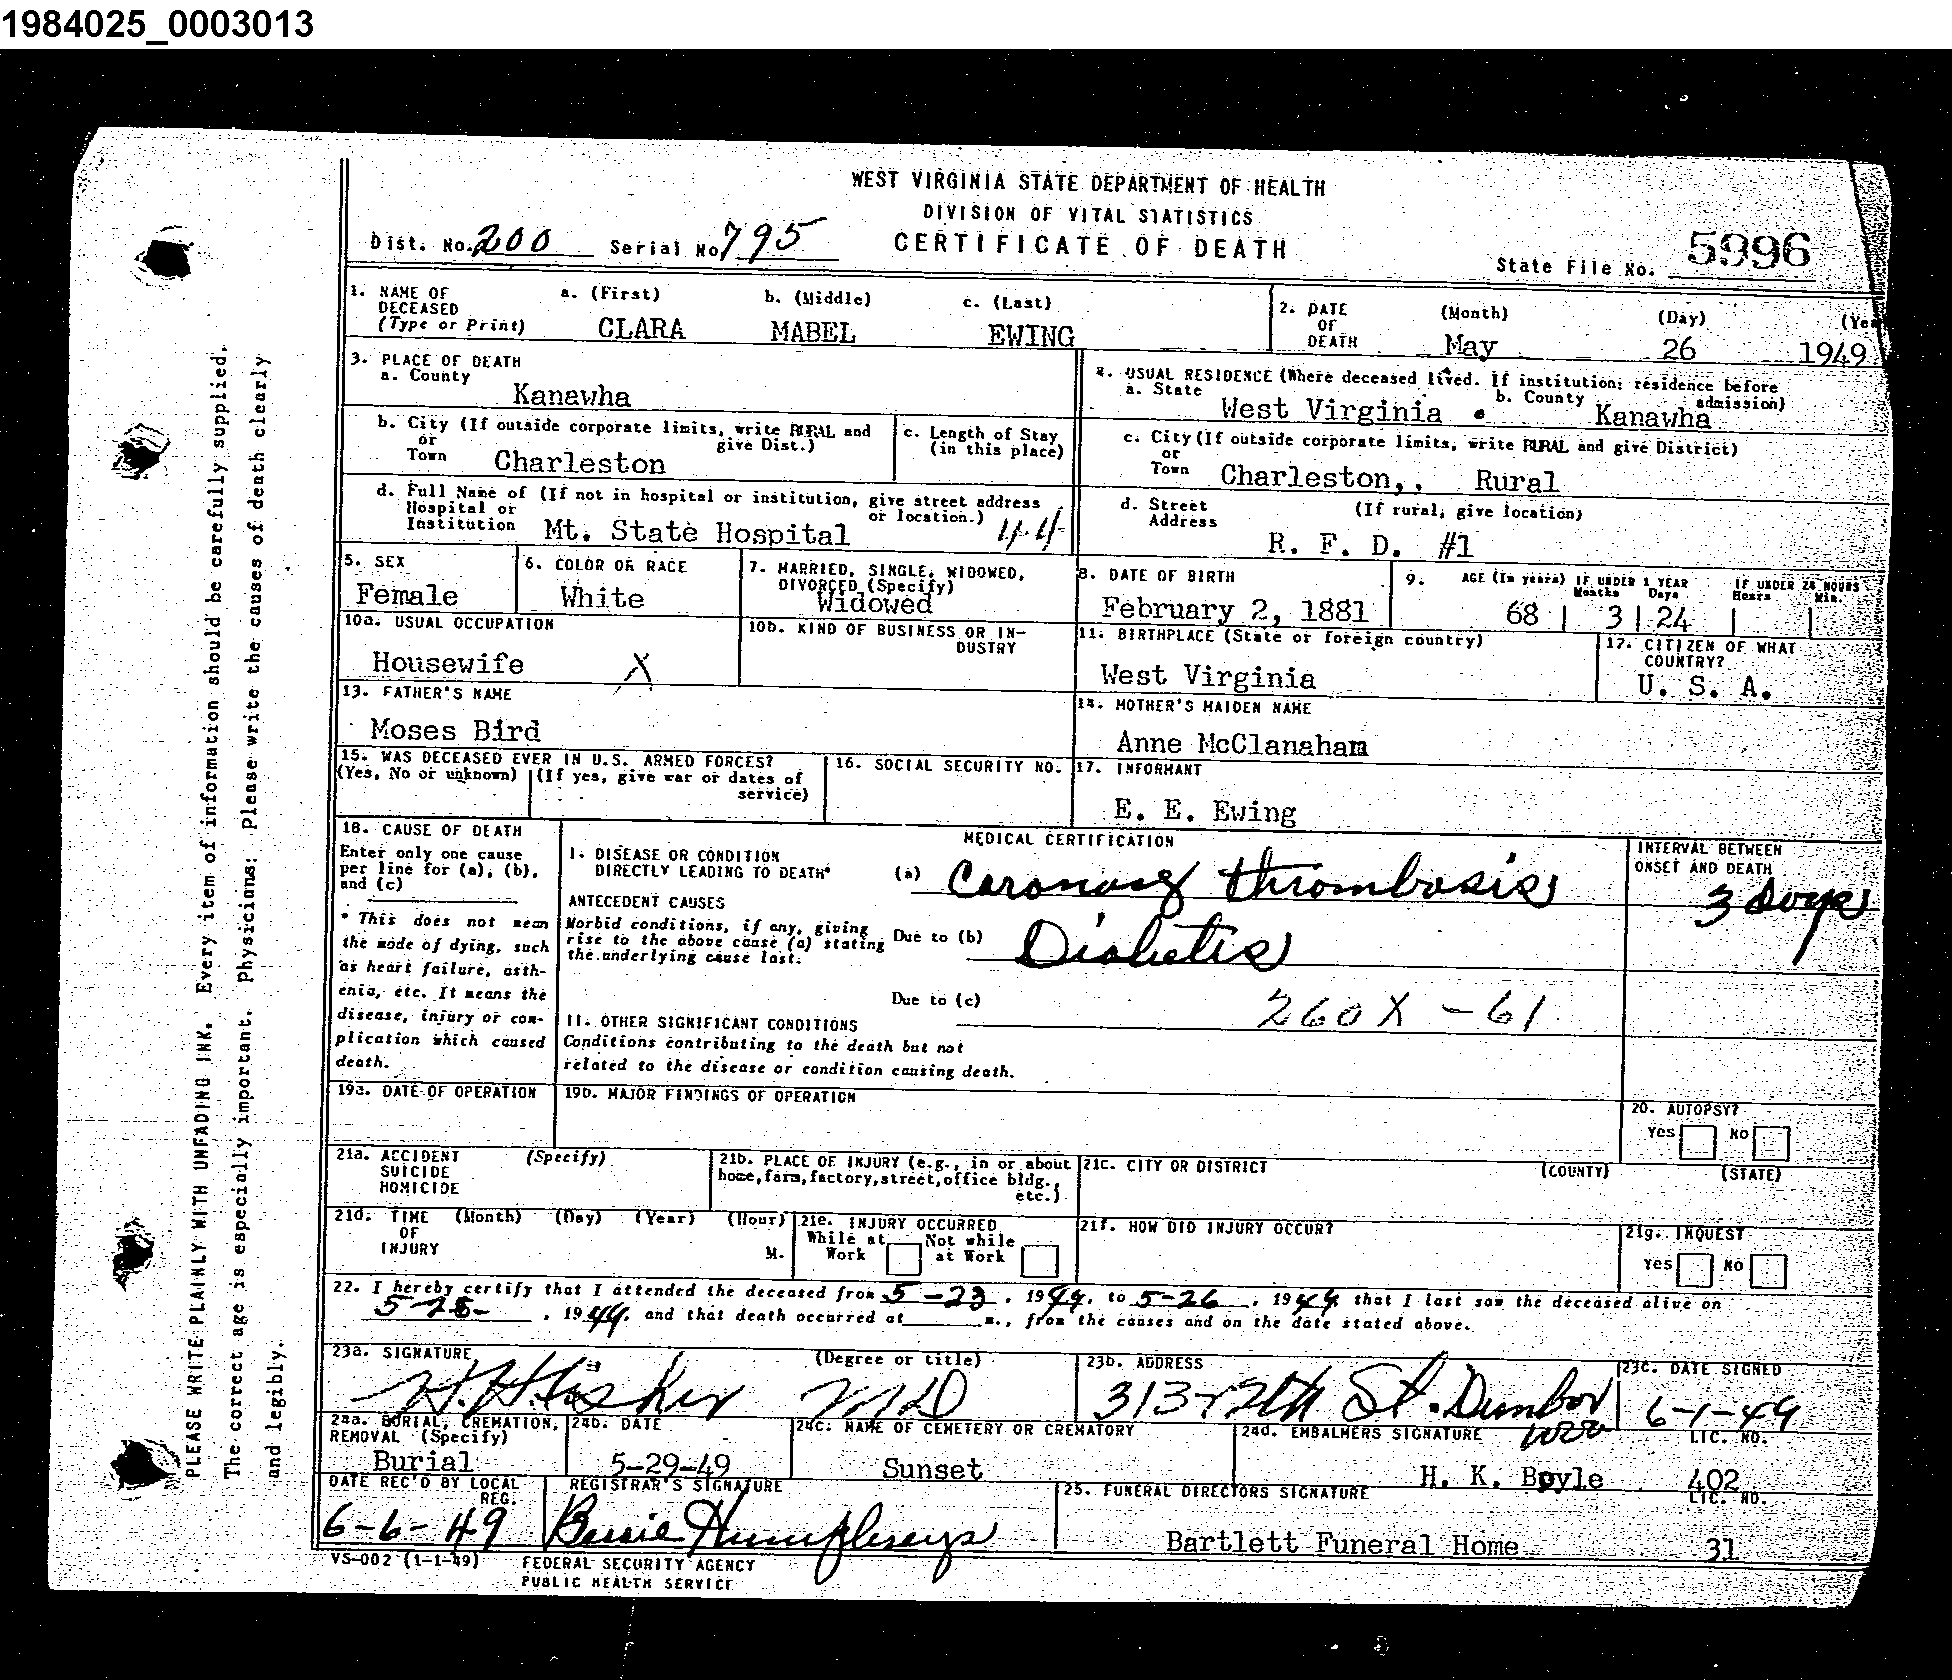 1984025_0003013
WEST VIRGINIA STATE DEPARTMENT OF HEALTH
DIVISION OF VITAL STATISTICS
Dist. No. 200 Serial No 795 CERTIFICATE OF DEATH
State File No. 5996
1. NAME OF DECEASED (Type or Print) a. (First) b. (Middle) c. (Last)
CLARA MABEL EWING
2. DATE OF DEATH (Month) (Day) (Yea
May 26 1949
3. PLACE OF DEATH
a. County
Kanawha
4. USUAL RESIDENCE (Where deceased lived. If institution: residence before admission)
a. State West Virginia b. County Kanawha
b. City (If outside corporate limits, write RURAL and give Dist.)
or Town Charleston
c. Length of Stay (in this place)
c. City (If outside corporate limits, write RURAL and give District)
or Town Charleston,, Rural
d. Full Name of (If not in hospital or institution, give street address or location.)
Hospital or Institution Mt. State Hospital 44
d. Street Address (If rural, give location)
R. F. D. #1
5. SEX
Female
6. COLOR OR RACE
White
7. MARRIED, SINGLE, WIDOWED, DIVORCED (Specify)
Widowed
8. DATE OF BIRTH
February 2, 1881
9. AGE (In years) IF UNDER 1 YEAR Months Days IF UNDER 24 HOURS Hours Min.
68 3 24
10a. USUAL OCCUPATION
Housewife X
10b. KIND OF BUSINESS OR INDUSTRY
11. BIRTHPLACE (State or foreign country)
West Virginia
12. CITIZEN OF WHAT COUNTRY?
U. S. A.
13. FATHER'S NAME
Moses Bird
14. MOTHER'S MAIDEN NAME
Anne McClanaham
15. WAS DECEASED EVER IN U.S. ARMED FORCES?
(Yes, No or unknown) (If yes, give war or dates of service)
16. SOCIAL SECURITY NO.
17. INFORMANT
E. E. Ewing
18. CAUSE OF DEATH
Enter only one cause per line for (a), (b), and (c)
* This does not mean the mode of dying, such as heart failure, asthenia, etc. It means the disease, injury or complication which caused death.
MEDICAL CERTIFICATION
I. DISEASE OR CONDITION DIRECTLY LEADING TO DEATH*
(a) Coronary thrombosis
INTERVAL BETWEEN ONSET AND DEATH
3 days
ANTECEDENT CAUSES
Morbid conditions, if any, giving rise to the above cause (a) stating the underlying cause last.
Due to (b) Diabetis
Due to (c)
260X - 61
II. OTHER SIGNIFICANT CONDITIONS
Conditions contributing to the death but not related to the disease or condition causing death.
19a. DATE OF OPERATION
19b. MAJOR FINDINGS OF OPERATION
20. AUTOPSY?
Yes No
21a. ACCIDENT SUICIDE HOMICIDE (Specify)
21b. PLACE OF INJURY (e.g., in or about home, farm, factory, street, office bldg., etc.)
21c. CITY OR DISTRICT (COUNTY) (STATE)
21d. TIME OF INJURY (Month) (Day) (Year) (Hour) M.
21e. INJURY OCCURRED
While at Work Not while at Work
21f. HOW DID INJURY OCCUR?
21g. INQUEST
Yes No
22. I hereby certify that I attended the deceased from 5-23, 1949, to 5-26, 1949, that I last saw the deceased alive on
5-25-, 1949, and that death occurred at m., from the causes and on the date stated above.
23a. SIGNATURE (Degree or title)
H. H. Fisher MD
23b. ADDRESS
313-12th St. Dunbar WVa
23c. DATE SIGNED
6-1-49
24a. BURIAL, CREMATION, REMOVAL (Specify)
Burial
24b. DATE
5-29-49
24c. NAME OF CEMETERY OR CREMATORY
Sunset
24d. EMBALMERS SIGNATURE LIC. NO.
H. K. Boyle 402
DATE REC'D BY LOCAL REG.
6-6-49
REGISTRAR'S SIGNATURE
Bessie Humphreys
25. FUNERAL DIRECTORS SIGNATURE LIC. NO.
Bartlett Funeral Home 31
VS-002 (1-1-49) FEDERAL SECURITY AGENCY
PUBLIC HEALTH SERVICE
PLEASE WRITE PLAINLY WITH UNFADING INK. Every item of information should be carefully supplied.
The correct age is especially important. Physicians: Please write the causes of death clearly
and legibly.